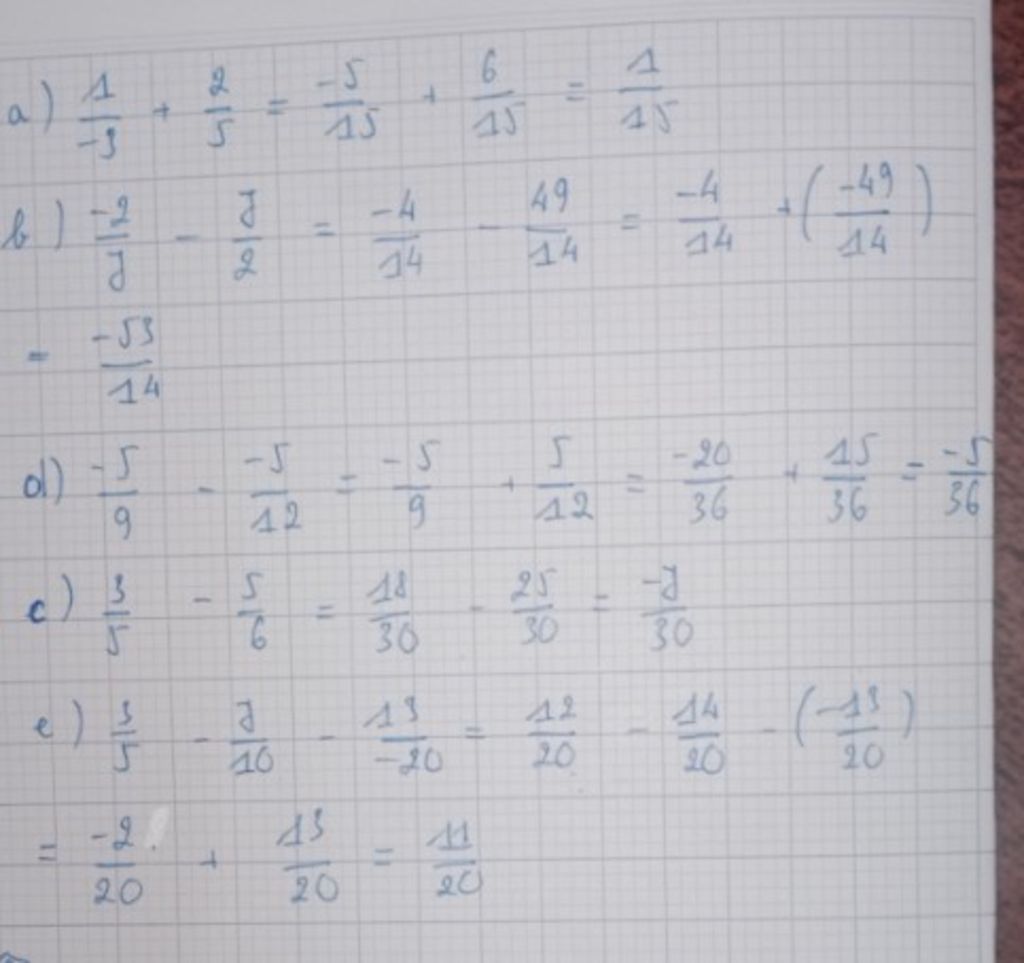 a) 1/-3 + 2/5 = -5/15 + 6/15 = 1/15
b) -2/7 - 7/2 = -4/14 - 49/14 = -4/14 + (-49/14)
= -53/14
d) -5/9 - -5/12 = -5/9 + 5/12 = -20/36 + 15/36 = -5/36
c) 3/5 - 5/6 = 18/30 - 25/30 = -7/30
e) 3/5 - 7/10 - 13/-20 = 12/20 - 14/20 - (-13/20)
= -2/20 + 13/20 = 11/20